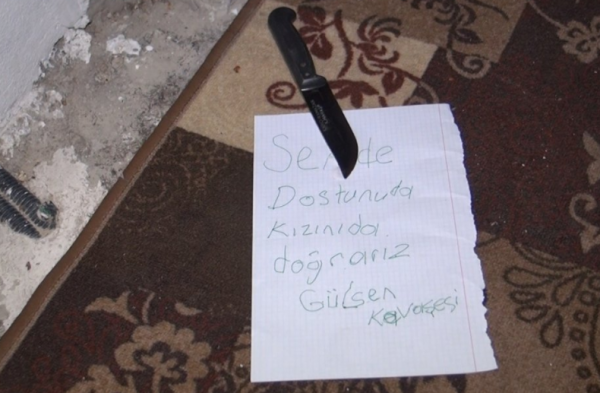 Senide
Dostunuda
Kızınıda
doğrarız
Gülşen
Kavaşeşi